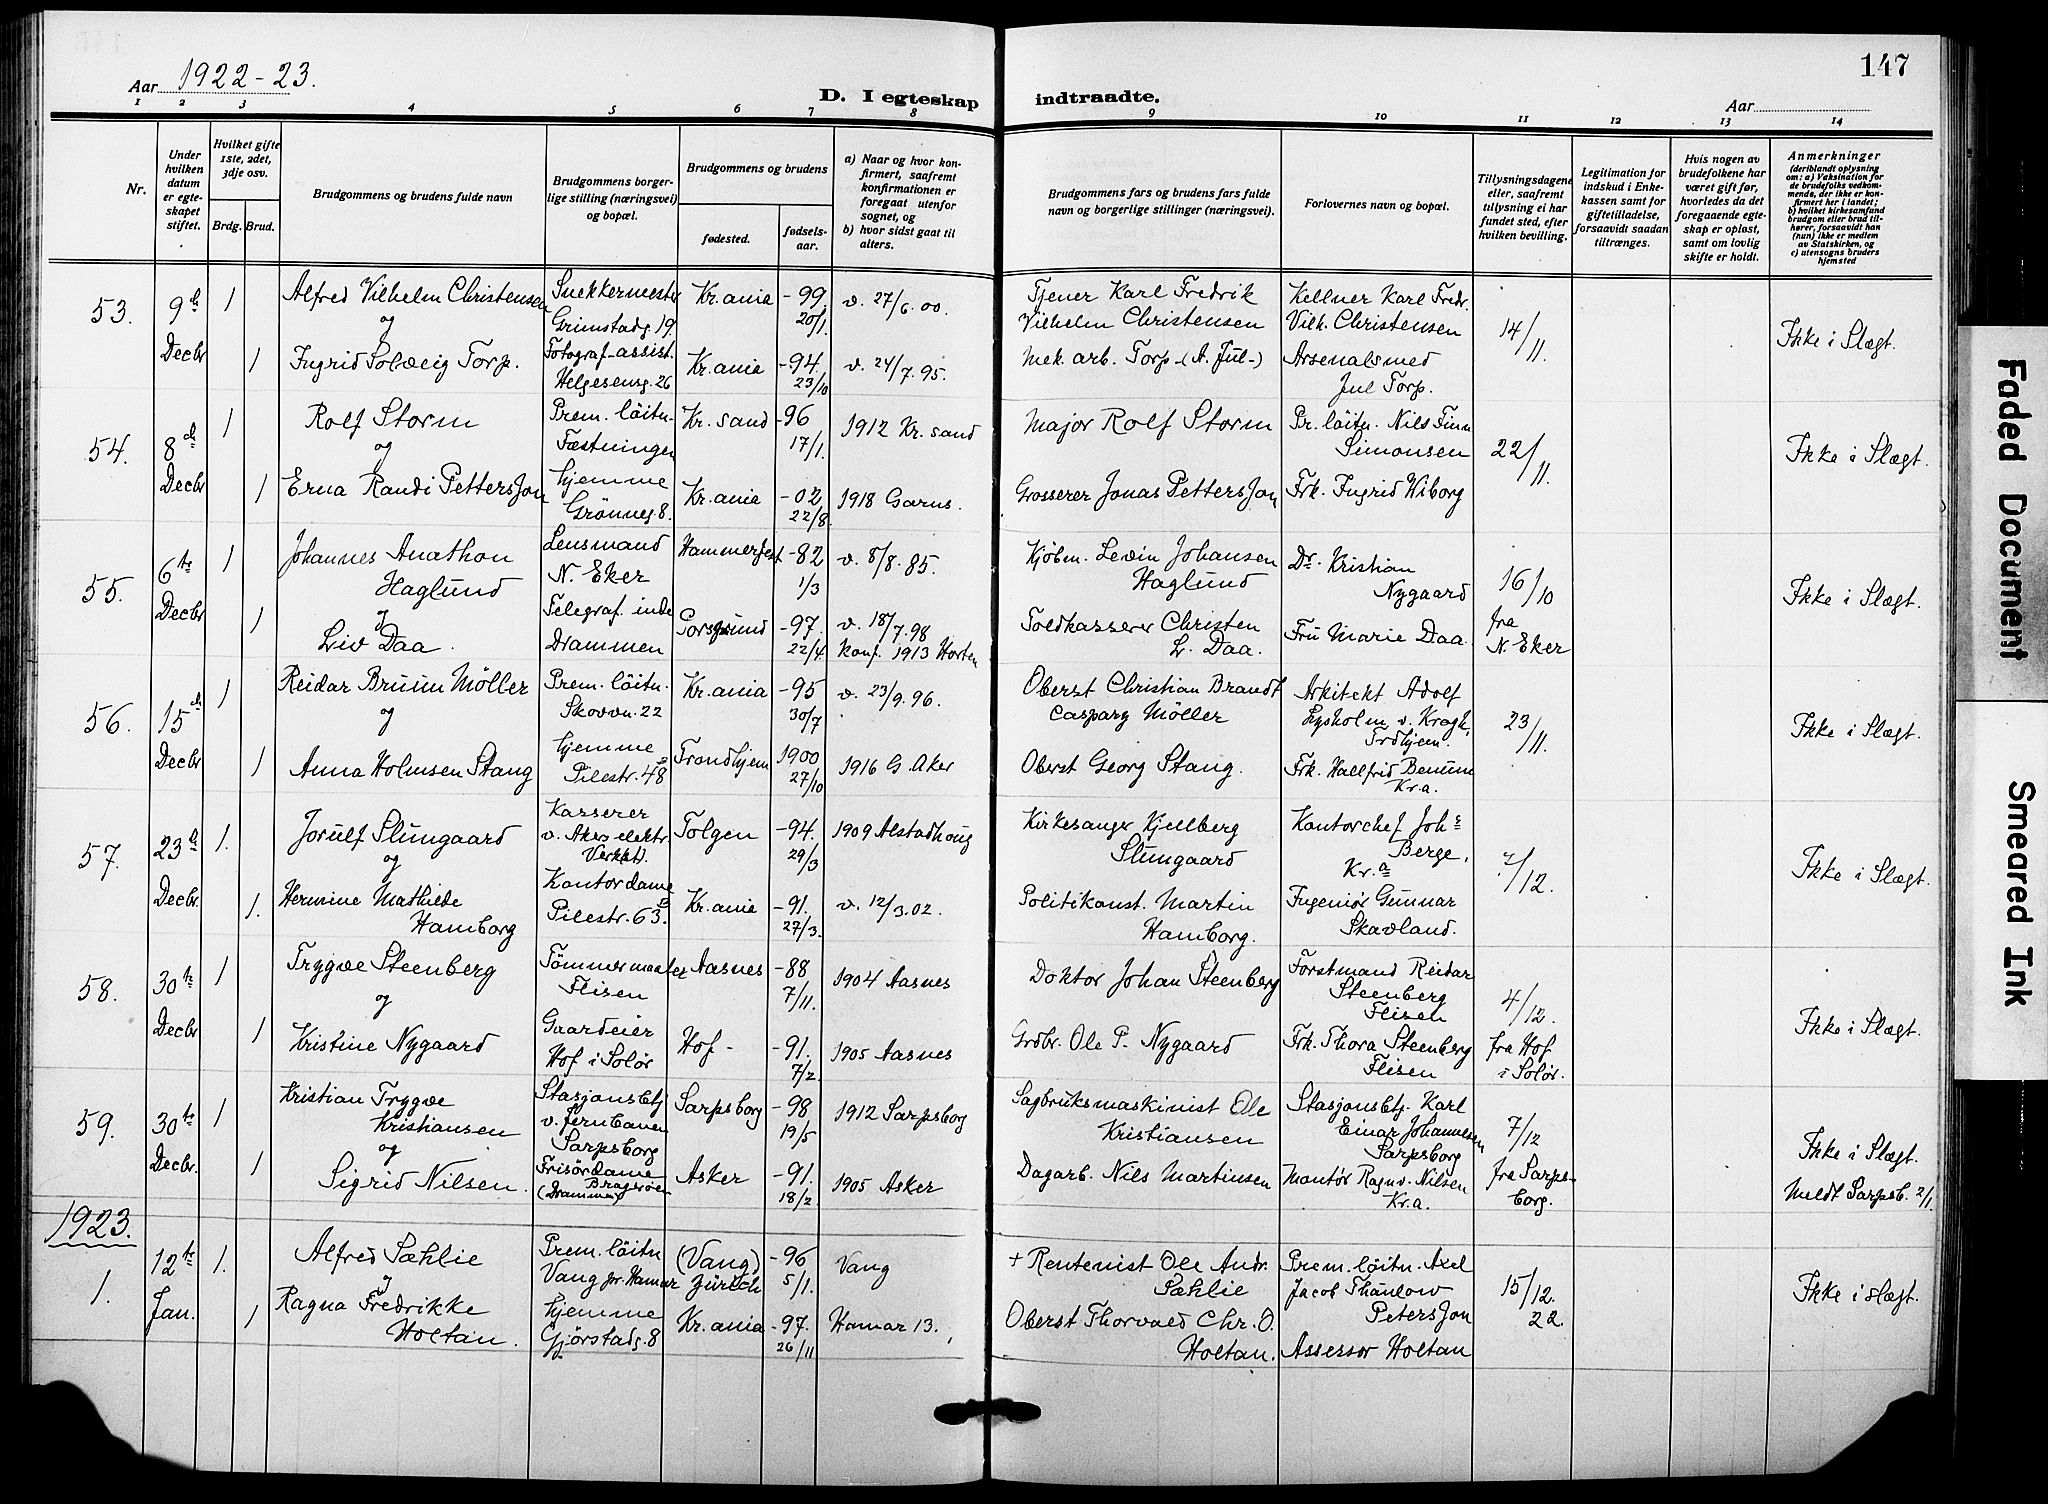 Aar 1922-23.
D. I egteskap indtraadte.
Aar
147
1 2 3 4 5 6 7 8 9 10 11 12 13 14
Nr.
Under hvilken datum er egteskapet stiftet.
Hvilket gifte 1ste, 2det, 3dje osv.
Brdg. Brud.
Brudgommens og brudens fulde navn
Brudgommens borgerlige stilling (næringsvei) og bopæl.
Brudgommens og brudens
fødested.
fødselsaar.
a) Naar og hvor konfirmert, saafremt konfirmationen er foregaat utenfor sognet, og
b) hvor sidst gaat til alters.
Brudgommens fars og brudens fars fulde navn og borgerlige stillinger (næringsvei).
Forlovernes navn og bopæl.
Tillysningsdagene eller, saafremt tillysning ei har fundet sted, efter hvilken bevilling.
Legitimation for indskud i Enkekassen samt for giftetilladelse, forsaavidt saadan tiltrænges.
Hvis nogen av brudefolkene har været gift før, hvorledes da det foregaaende egteskap er opløst, samt om lovlig skifte er holdt.
Anmerkninger
(deriblandt oplysning om: a) Vaksination for de brudefolks vedkommende, der ikke er konfirmert her i landet; b) hvilket kirkesamfund brudgom eller brud tilhører, forsaavidt han (hun) ikke er medlem av Statskirken, og c) utensogns bruders hjemsted
53. 9de Decbr 1 Alfred Vilhelm Christensen Snekkermester Grimstadg. 19. Kr.ania -99 20/1. v. 27/6. 00. Tjener Karl Fredrik Vilhelm Christensen Kellner Karl Fredr. Vilh. Christensen 14/11. Ikke i Slægt.
og
1 Ingrid Solveig Torp. Fotograf-assist. Helgesensg. 26 Kr.ania -94. 23/10 v. 24/7. 95. Mek. arb. Torp-(A. Jul-) Arsenalsmed Jul Torp.
54. 8de Decbr 1 Rolf Storm Prem. löitn. Fæstningen Kr. sand -96 17/1. 1912 Kr. sand Major Rolf Storm Pr. löitn. Nils Finn Simonsen 22/11. Ikke i Slægt.
og
1 Erna Randi Pettersson hjemme Grönneg. 8. Kr. ania -02 22/8. 1918 Garns. Grosserer Jonas Pettersson Frk. Ingrid Wiborg
55. 6te Decbr 1 Johannes Anathon Haglund Lensmand N. Eker Hammerfest -82 1/3 v. 8/8. 85. Kjöbm. Levin Johansen Haglund Dr. Kristian Nygaard 16/10 fra N. Eker Ikke i Slægt.
og
1 Liv Daa. Telegraf. inde Drammen Porsgrund -97. 22/4. v. 18/7. 98 Konf. 1913 Horten Toldkasserer Christen L. Daa. Fru Marie Daa.
56. 15de Decbr 1 Reidar Bruun Möller Prem. löitn. Skovvn. 22 Kr. ania -95 30/7 v. 23/9. 96. Oberst Christian Brandt Caspary Möller Arkitekt Adolf Lysholm v. Krogh, Trdhjem. 23/11. Ikke i Slægt.
og
1 Anna Holmsen Stang hjemme Pilestr. 48 Trondhjem 1900 27/10 1916 G. Aker Oberst Georg Stang. Frk. Hallfrid Kr.a.
57. 23de Decbr. 1. Jorulf Slungaard Kasserer v. Akers elektr. Verket). Tolgen -94. 29/3 1909 Alstadhoug Kirkesanger Kjellberg Slungaard Kontorchef Johs Berge, Kr.a /12. Ikke i Slægt.
og
1. Hermine Mathilde Hamborg Kontordame Pilestr. 63. Kr. ania -91. 27/3. v. 12/3. 02. Politikonst. Martin Hamborg. Ingeniör Gunnar Skavland.
58. 30te Decbr 1 Trygve Steenberg Tömmermaaler Flisen Aasnes -88 7/11. 1904 Aasnes Doktor Johan Steenberg Forstmand Reidar Steenberg Flisen 4/12. fra Hof i Solör. Ikke i Slægt.
og
1 Kristine Nygaard Gaardeier Hof i Solör Hof - -91. 7/2 1905 Aasnes Grdbr. Ole P. Nygaard Frk. Thora Steenberg Flisen
59. 30te Decbr. 1 Kristian Trygve Kristiansen Stasjonsbtj v. jernbanen Sarpsborg Sarpsborg -98 19/5 1912 Sarpsborg Sagbruksmaskinist Ole Kristiansen Stasjonsbtj. Karl Einar Johannesen Sarpsborg 7/12 fra Sarpsborg. Ikke i Slægt. Meldt Sarpsb. 2/1.
og
1 Sigrid Nilsen. Frisördame Bragerøen (Drammen) Asker -91. 18/2 1905 Asker Dagarb. Nils Martinsen Montör Ragnv. Nilsen Kr.a.
1923.
1. 12te Jan. 1. Alfred Sæhlie Prem. löitn Vang pr. Hamar (Vang) Zürich -96 5/1. Vang + Rentenist Ole Andr. Sæhlie Prem. löitn. Axel Jacob Thaulow Petersson 15/12. 22. Ikke i slægt.
og
1 Ragna Fredrikke Holtan. hjemme Gjörstadg. 8 Kr. ania -97. 26/11 Hamar 13. Oberst Thorvald Chr. O. Holtan. Assessor Holtan
Faded Document
Smeared Ink